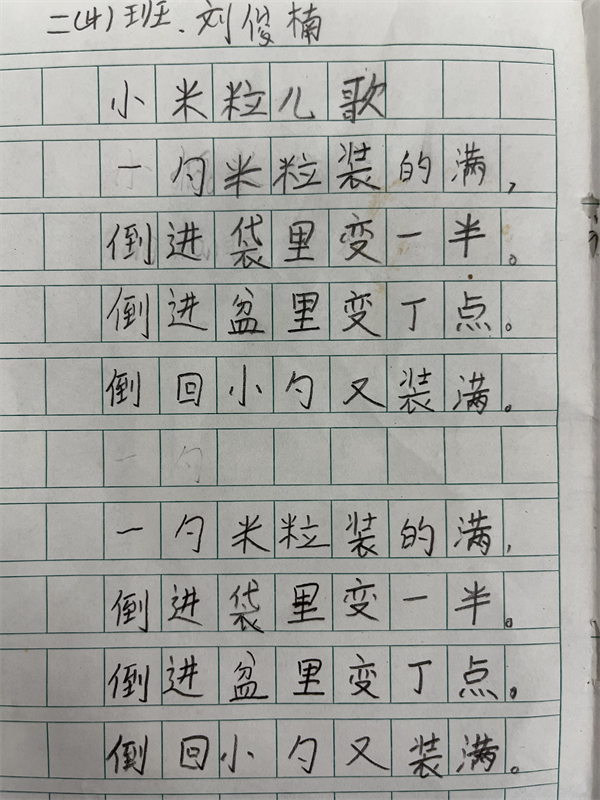 二(4)班.刘俊楠
小米粒儿歌
一勺米粒装的满,
倒进袋里变一半。
倒进盆里变丁点。
倒回小勺又装满。
一勺
一勺米粒装的满,
倒进袋里变一半。
倒进盆里变丁点。
倒回小勺又装满。